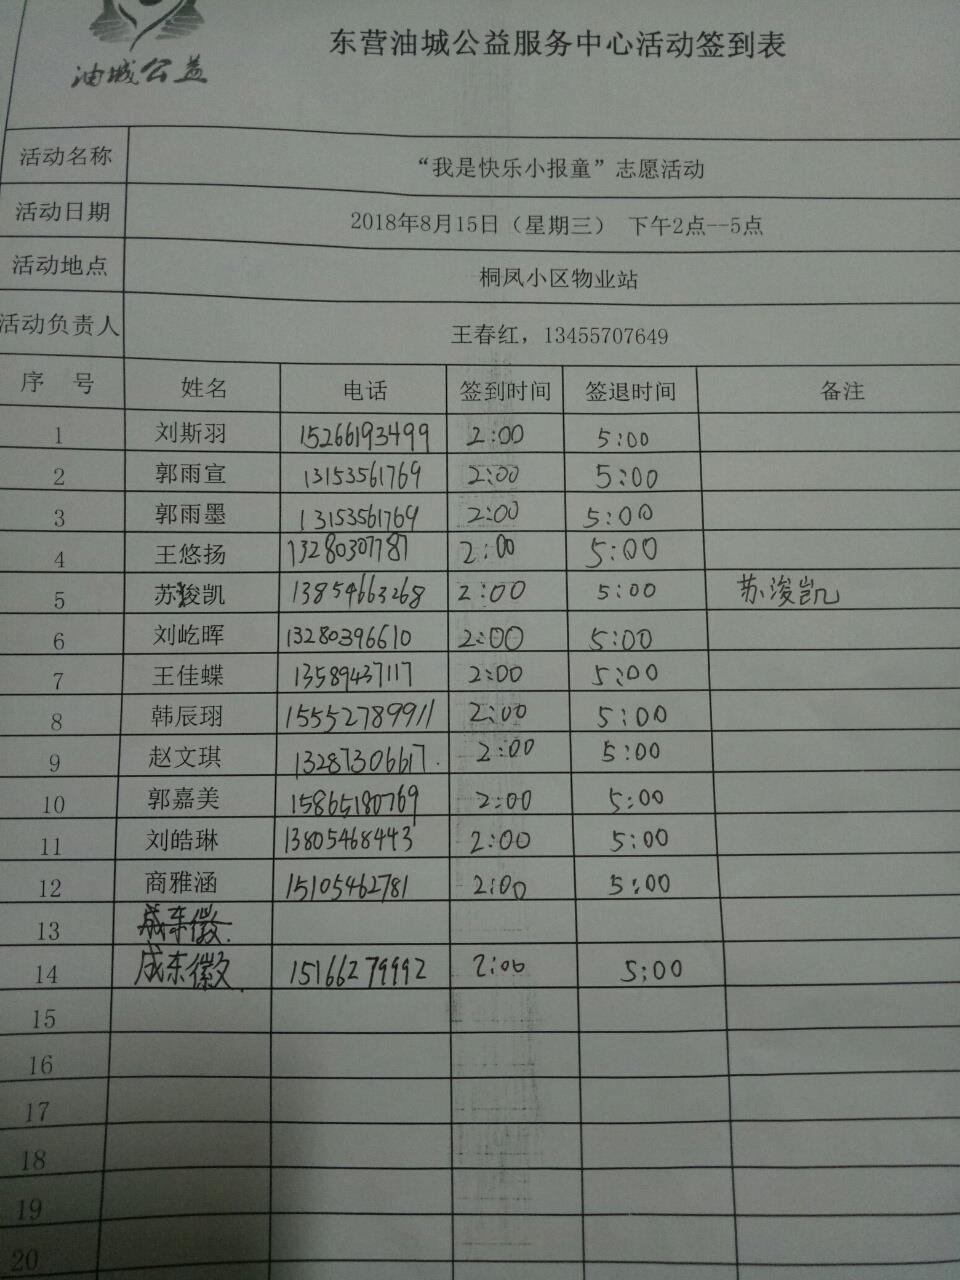 油城公益
东营油城公益服务中心活动签到表
活动名称 “我是快乐小报童”志愿活动
活动日期 2018年8月15日（星期三） 下午2点--5点
活动地点 桐凤小区物业站
活动负责人 王春红，13455707649
序 号 姓名 电话 签到时间 签退时间 备注
1 刘斯羽 15266193499 2:00 5:00
2 郭雨宣 13153561769 2:00 5:00
3 郭雨墨 13153561769 2:00 5:00
4 王悠扬 13280307787 2:00 5:00
5 苏浚凯 13854663268 2:00 5:00 苏浚凯
6 刘屹晖 13280396610 2:00 5:00
7 王佳蝶 13589437117 2:00 5:00
8 韩辰珝 15552789911 2:00 5:00
9 赵文琪 13287306617. 2:00 5:00
10 郭嘉美 15865180769 2:00 5:00
11 刘皓琳 13805468443 2:00 5:00
12 商雅涵 15105462781 2:00 5:00
13 成东徽.
14 成东徽. 15166279992 2:00 5:00
15
16
17
18
19
20